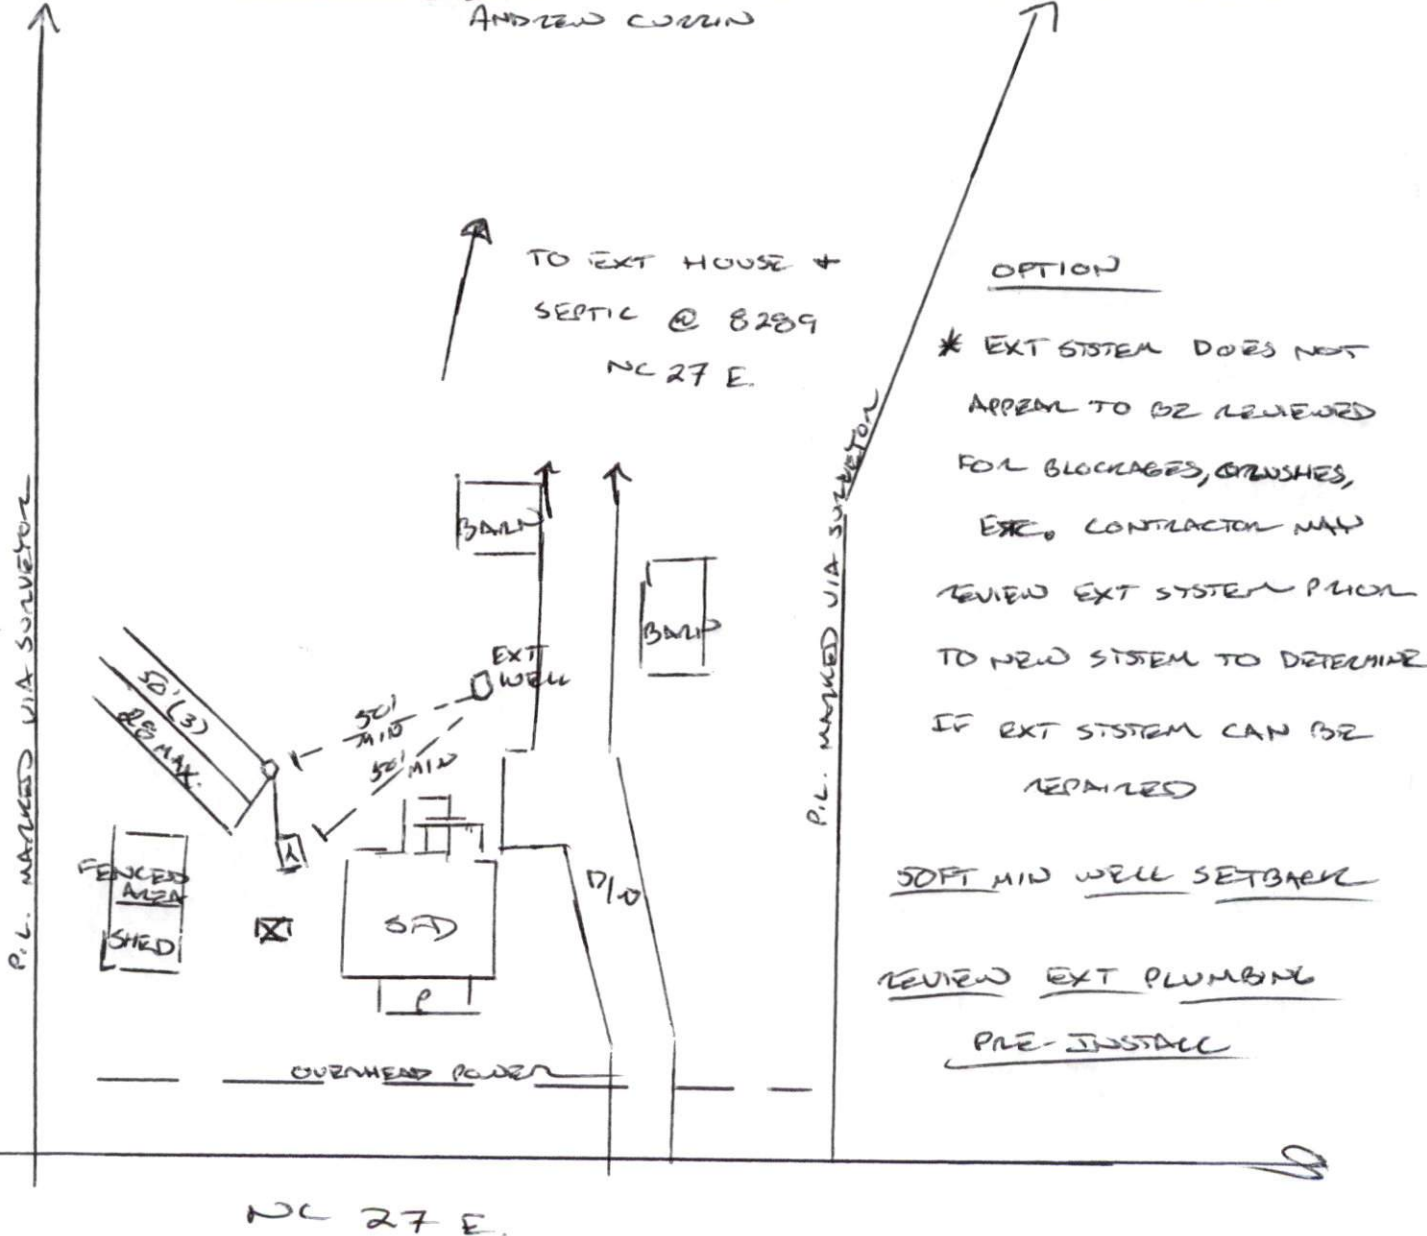 ANDREW CURRIN
TO EXT HOUSE +
SEPTIC @ 8289
NC 27 E.
OPTION
* EXT SYSTEM DOES NOT
APPEAR TO BE REVIEWED
FOR BLOCKAGES, CRUSHES,
ETC. CONTRACTOR MAY
REVIEW EXT SYSTEM PRIOR
TO NEW SYSTEM TO DETERMINE
IF EXT SYSTEM CAN BE
REPAIRED
50FT MIN WELL SETBACK
REVIEW EXT PLUMBING
PRE-INSTALL
P.L. MARKED VIA SURVEYOR
P.L. MARKED VIA SURVEYOR
BARN
BARN
EXT
WELL
50'
MIN
50' MIN
50' (3)
28 MAX.
FENCED
AREA
SHED
SFD
P
D/W
OVERHEAD POWER
NC 27 E.